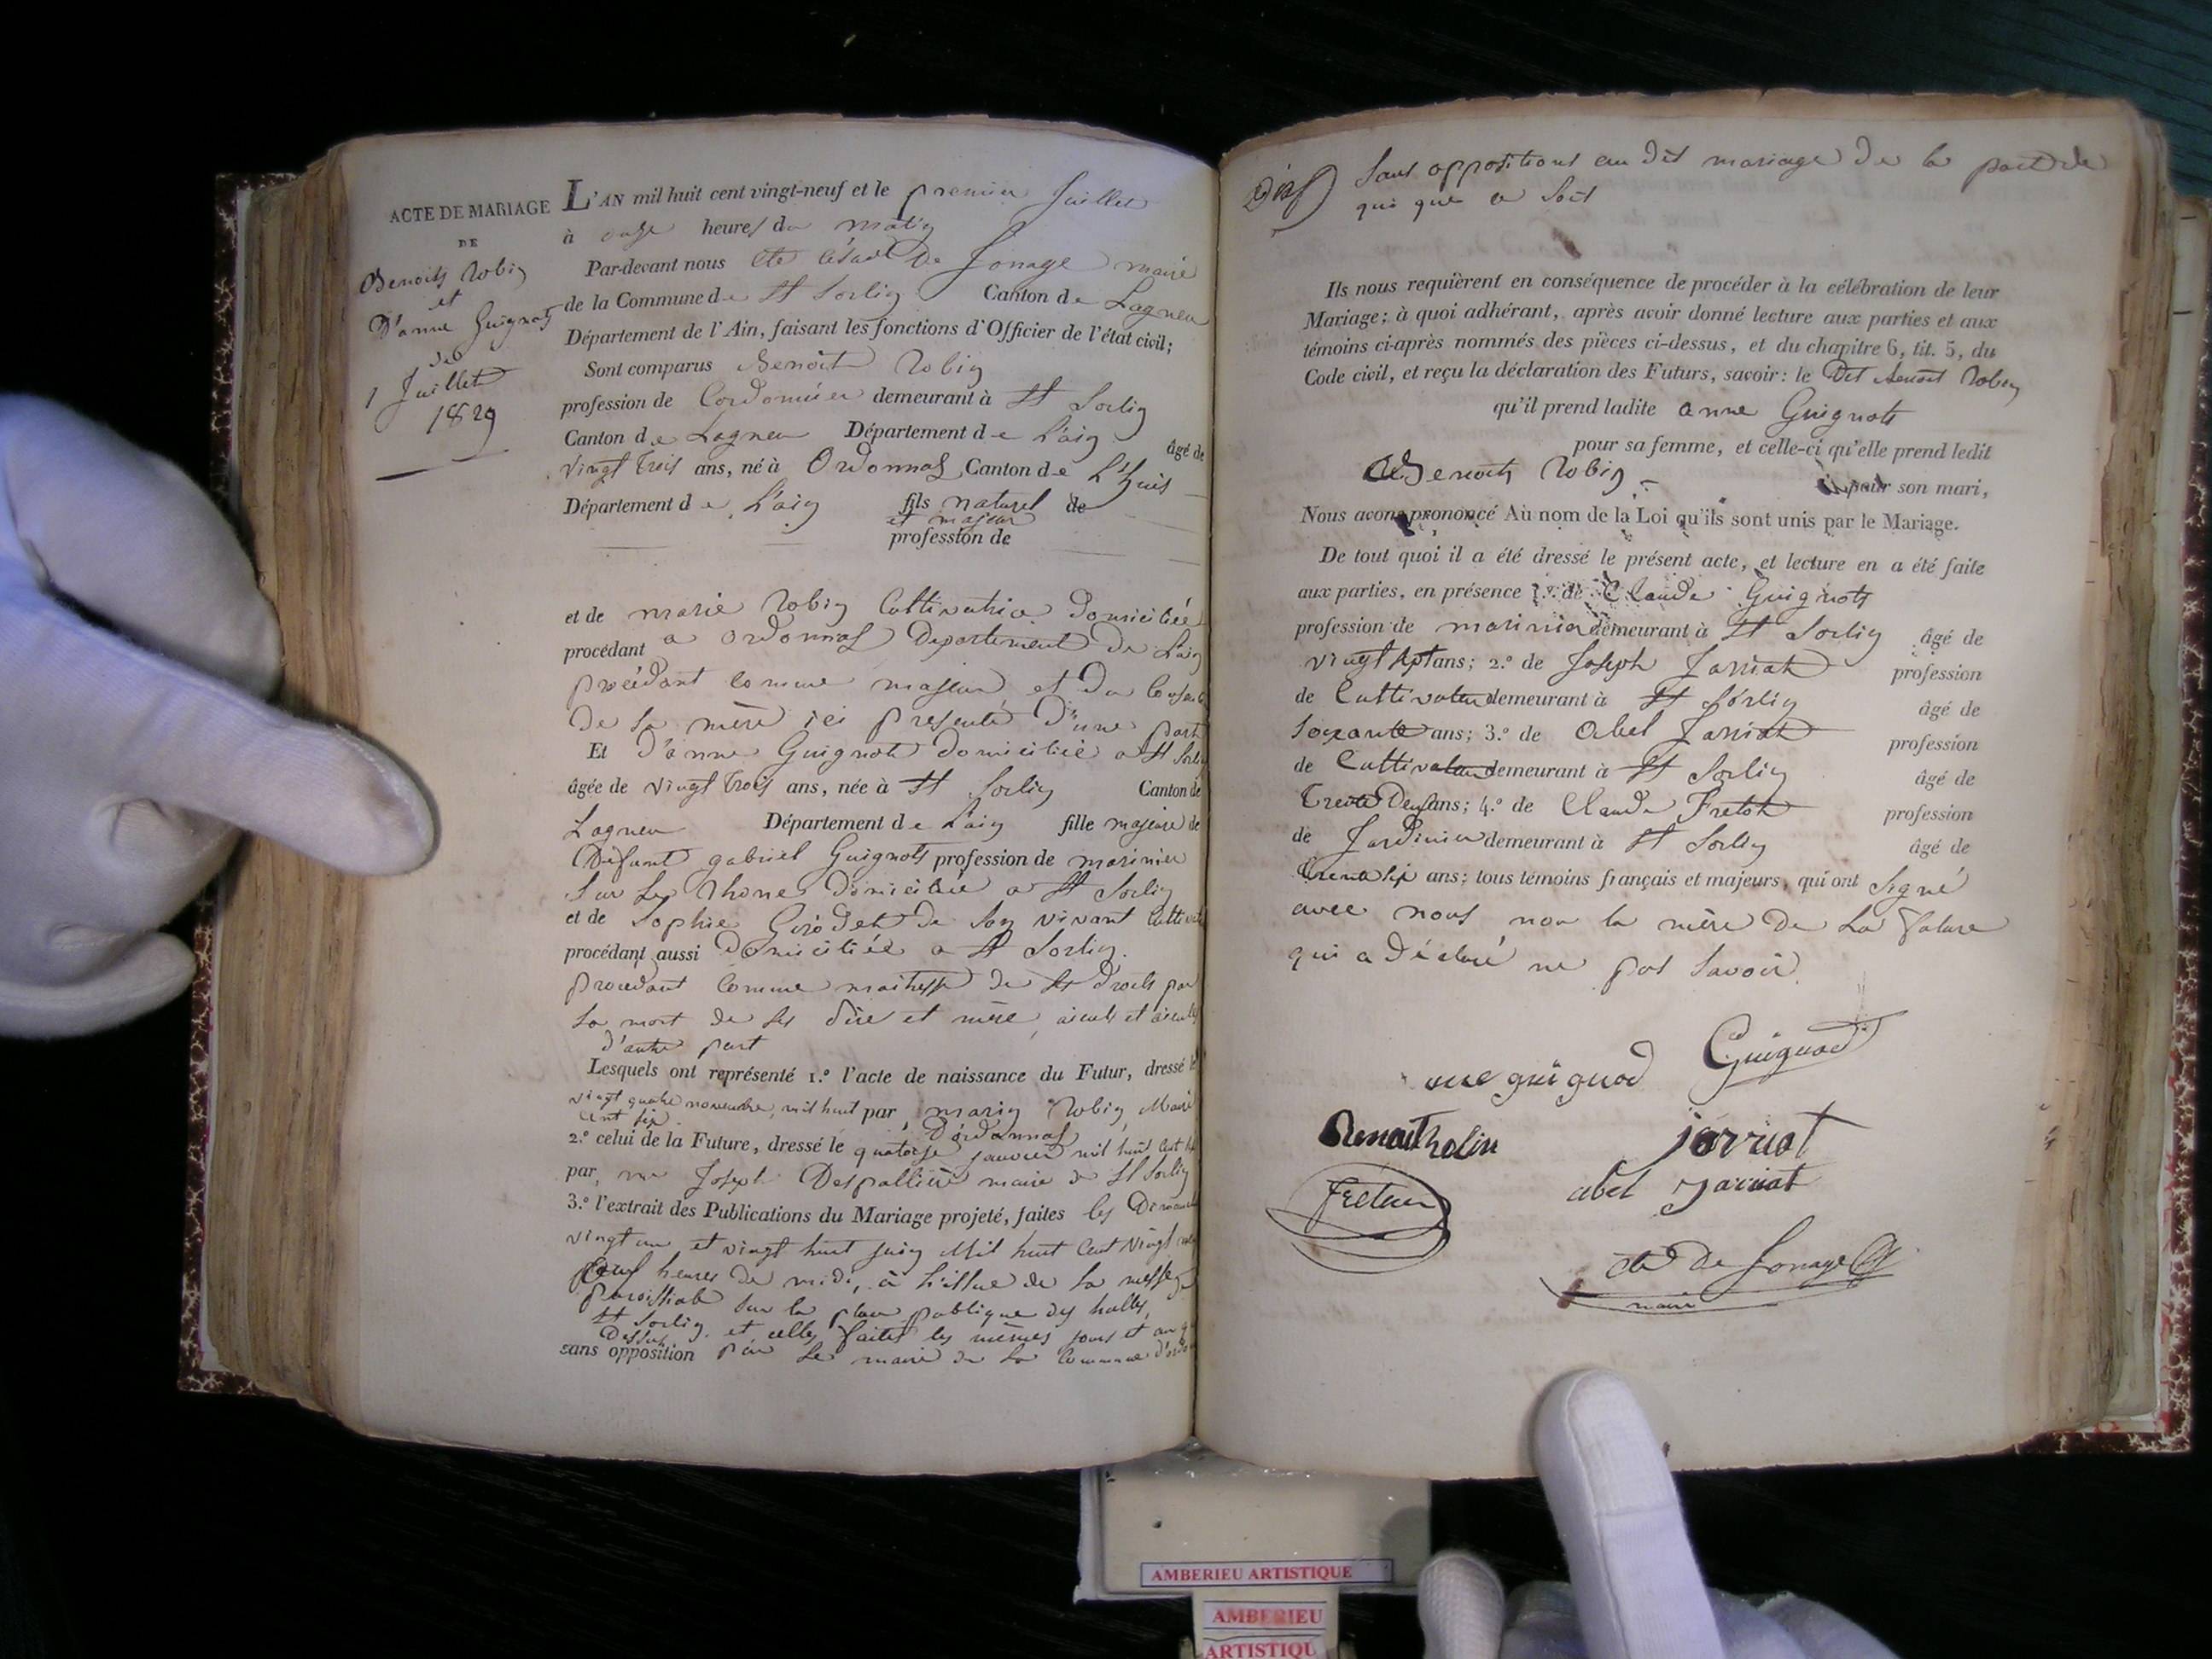 ACTE DE MARIAGE
DE
Benoits Robin
et
D'anne Guignots
du
1 Juillet
1829
L'AN mil huit cent vingt-neuf et le premier Juillet
à onze heures du matin
Par-devant nous de Jonage maire
de la Commune de St Sorlin Canton de Lagneu
Département de l'Ain, faisant les fonctions d'Officier de l'état civil;
Sont comparus Benoit Robin
profession de Cordonnier demeurant à St Sorlin
Canton de Lagneu Département de L'ain âgé de
vingt trois ans, né à Ordonnas Canton de L'huis
Département de L'ain fils naturel de
et majeur
profession de
et de marie Robin Cultivatrice domiciliée
procédant a Ordonnas Departement de L'ain
procédant comme majeur et du
de sa mère ici presente d'une part
Et D'anne Guignots domiciliée a St Sorlin
âgée de vingt trois ans, née à St Sorlin Canton de
Lagneu Département de L'ain fille majeure de
Défunt gabriel Guignots profession de marinier
sur le Rhone domicilié a St Sorlin
et de Sophie Girodet de son vivant
procédant aussi Domiciliée a St Sorlin.
procedant comme maitresse de ses droits par
la mort de ses père et mère, aieuls et aieules
d'autre part
Lesquels ont représenté 1.º l'acte de naissance du Futur, dressé le
vingt quatre novembre, mil huit par, marin Robin, Maire
cent six D'ordonnas
2.º celui de la Future, dressé le quatorze janvier mil huit cent six
par, mr Joseph Despallière maire de St Sorlin
3.º l'extrait des Publications du Mariage projeté, faites les Dimanches
vingt un et vingt huit juin Mil huit Cent vingt neuf
heures de midi, à l'issue de la messe
Paroissiale sur la place publique des halles,
St Sorlin. et celles faites les mêmes jours et an que
Dessus
sans opposition par le maire de la Commune
Dix Sans oppositions au dit mariage de la part de
qui que ce soit
Ils nous requièrent en conséquence de procéder à la célébration de leur
Mariage; à quoi adhérant, après avoir donné lecture aux parties et aux
témoins ci-après nommés des pièces ci-dessus, et du chapitre 6, tit. 5, du
Code civil, et reçu la déclaration des Futurs, savoir: le Dit Benoit Robin
qu'il prend ladite anne Guignots
pour sa femme, et celle-ci qu'elle prend ledit
Benoits Robin pour son mari,
Nous avons prononcé Au nom de la Loi qu'ils sont unis par le Mariage.
De tout quoi il a été dressé le présent acte, et lecture en a été faite
aux parties, en présence 1.º de Claude Guignots
profession de marinier demeurant à St Sorlin âgé de
vingt sept ans; 2.º de Joseph Jarriat profession
de Cultivateur demeurant à St Sorlin âgé de
Soixante ans; 3.º de Abel Jarriat profession
de Cultivateur demeurant à St Sorlin âgé de
Trente Deux ans; 4.º de Claude Fretot profession
de Jardinier demeurant à St Sorlin âgé de
trente six ans; tous témoins français et majeurs, qui ont Signé
avec nous non la mère de La future
qui a Déclaré ne pas Savoir.
Guignod
guiguod
Benoit Robin
jarriat
abel jarriat
de Jonage
maire
AMBERIEU ARTISTIQUE
AMBERIEU
ARTISTIQU